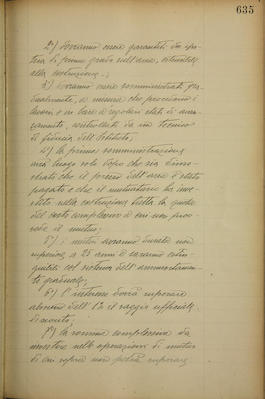 635
2°) dovranno essere garantiti da ipo-
teca di primo grado sull'area, estensibile
alla costruzione;
3°) dovranno essere somministrati gra-
dualmente, a misura che procedono i
lavori e in base a regolari stati di avan-
zamento, controllati da un tecnico
di fiducia dell'Istituto;
4°) la prima somministrazione
avrà luogo solo dopo che sia dimo-
strato che il prezzo dell'area è stato
pagato e che il mutuatario ha inve-
stito nella costruzione tutta la quota
del costo complessivo a cui non prov-
vede il mutuo;
5°) i mutui avranno durata non
superiore a 25 anni e saranno estin-
guibili col sistema dell'ammortamen-
to graduale;
6°) l'interesse dovrà superare
almeno dell' 1% il saggio ufficiale
di sconto;
7°) la somma complessiva da
investire nelle operazioni di mutui
di cui sopra non potrà superare